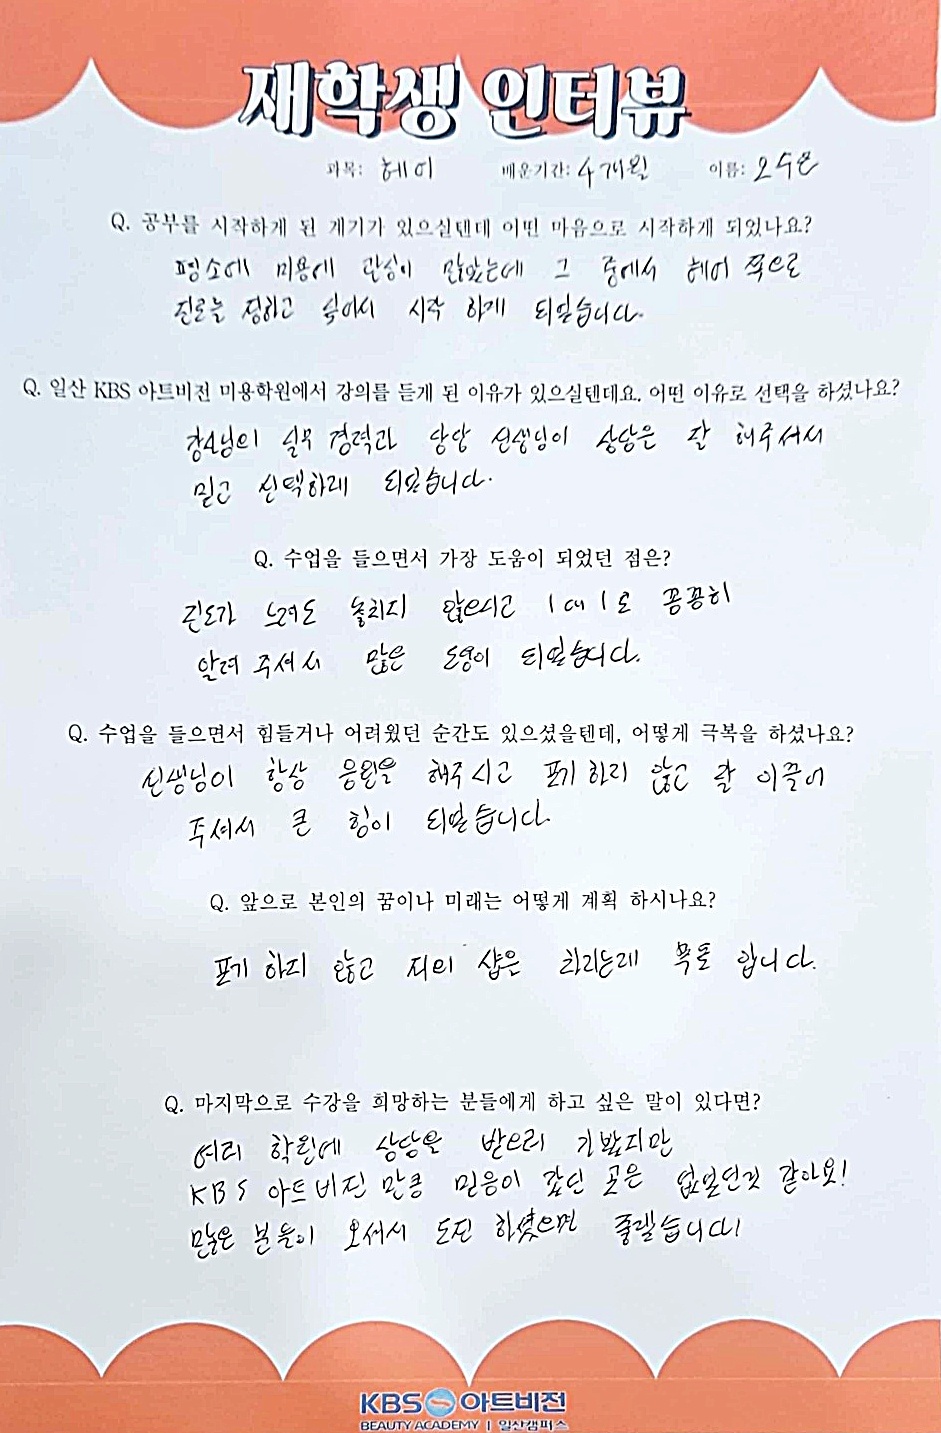 재학생 인터뷰
과목: 헤어 배운기간: 4개월 이름: 오수은
Q. 공부를 시작하게 된 계기가 있으실텐데 어떤 마음으로 시작하게 되었나요?
평소에 미용에 관심이 많았는데 그 중에서 헤어 쪽으로
진로를 정하고 싶어서 시작 하게 되었습니다.
Q. 일산 KBS 아트비전 미용학원에서 강의를 듣게 된 이유가 있으실텐데요. 어떤 이유로 선택을 하셨나요?
강사님의 실무 경력과 담당 선생님이 상담은 잘 해주셔서
믿고 선택하게 되었습니다.
Q. 수업을 들으면서 가장 도움이 되었던 점은?
진도가 느려도 놓치지 않으시고 1대1로 꼼꼼히
알려 주셔서 많은 도움이 되었습니다.
Q. 수업을 들으면서 힘들거나 어려웠던 순간도 있으셨을텐데, 어떻게 극복을 하셨나요?
선생님이 항상 응원을 해주시고 포기 하지 않고 잘 이끌어
주셔서 큰 힘이 되었습니다.
Q. 앞으로 본인의 꿈이나 미래는 어떻게 계획 하시나요?
포기 하지 않고 저의 샵은 차리는게 목표 입니다.
Q. 마지막으로 수강을 희망하는 분들에게 하고 싶은 말이 있다면?
여러 학원에 상담을 받으러 가봤지만
KBS 아트비전 만큼 믿음이 갔던 곳은 없었던것 같아요!
많은 분들이 오셔서 도전 하셨으면 좋겠습니다!
KBS 아트비전
BEAUTY ACADEMY | 일산캠퍼스